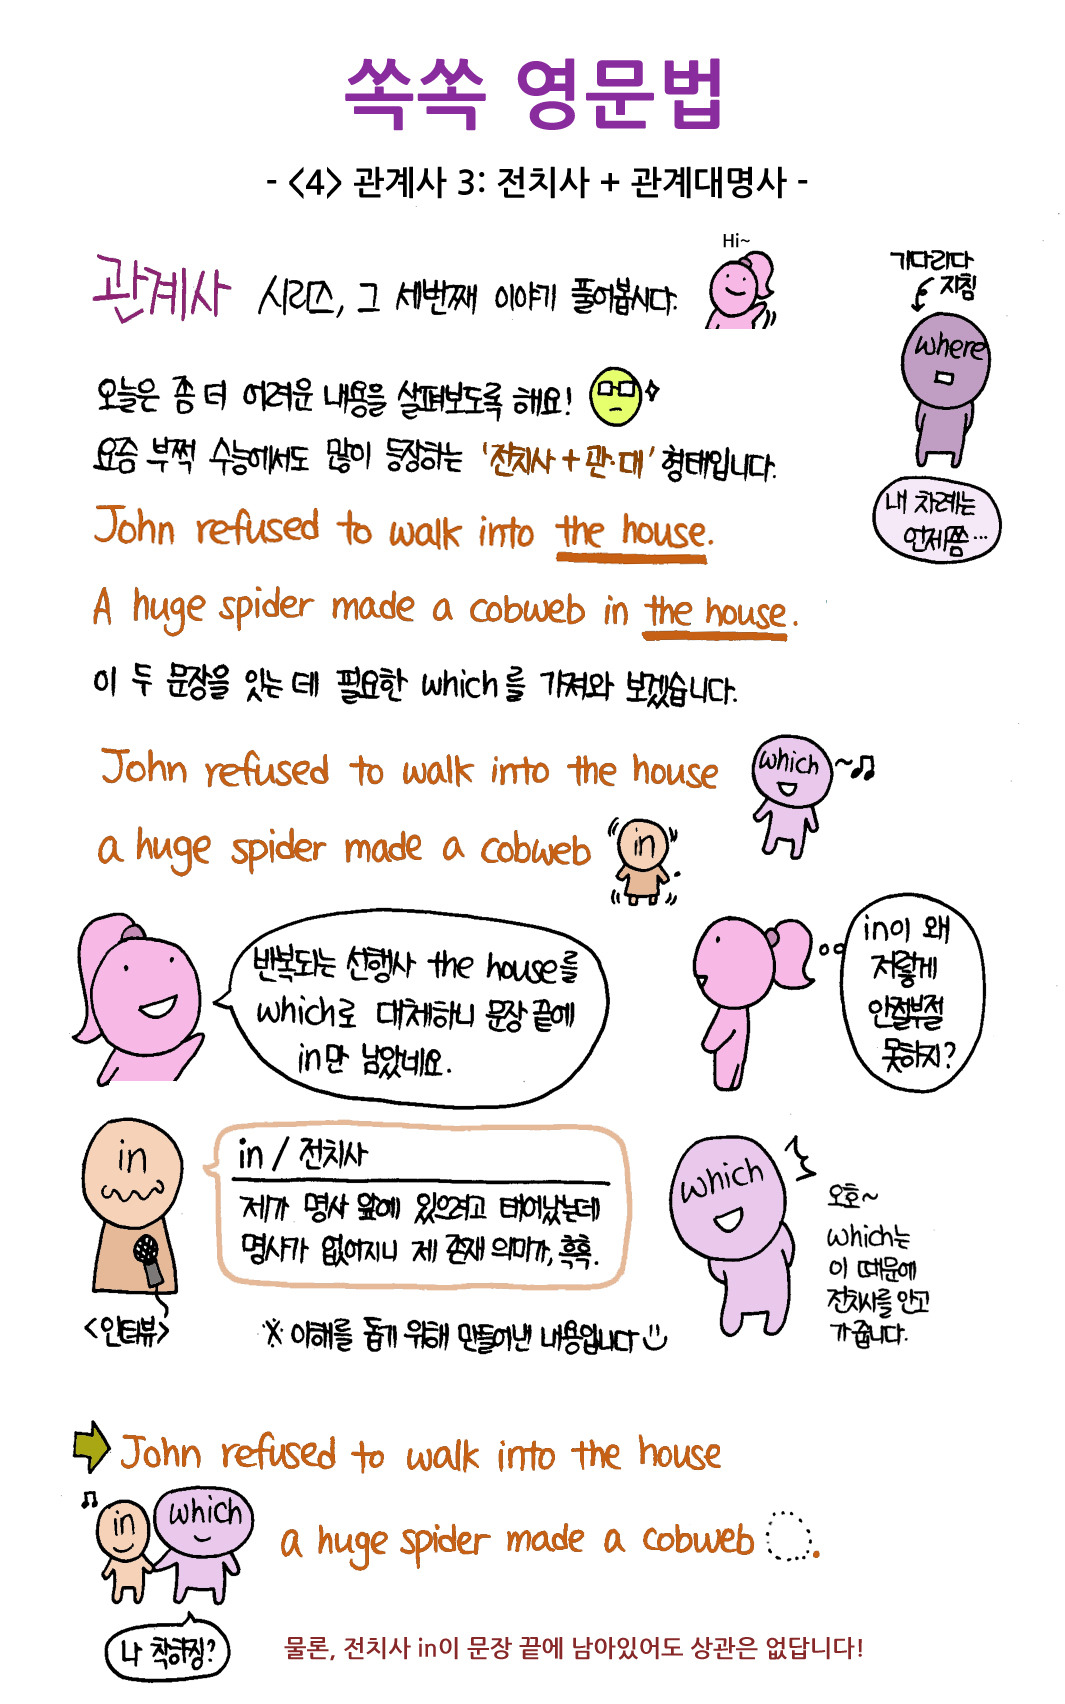 쏙쏙 영문법
- <4> 관계사 3: 전치사 + 관계대명사 -
Hi~
관계사 시리즈, 그 세번째 이야기 풀어봅시다.
기다리다
지침
where
내 차례는
언제쯤...
오늘은 좀 더 어려운 내용을 살펴보도록 해요!
요즘 부쩍 수능에서도 많이 등장하는 '전치사 + 관·대' 형태입니다.
John refused to walk into the house.
A huge spider made a cobweb in the house.
이 두 문장을 잇는 데 필요한 which를 가져와 보겠습니다.
John refused to walk into the house which ~♫
a huge spider made a cobweb in
반복되는 선행사 the house를
which로 대체하니 문장 끝에
in만 남았네요.
in이 왜
저렇게
안절부절
못하지?
in
in / 전치사
제가 명사 앞에 있으려고 태어났는데
명사가 없어지니 제 존재 의미가, 흑흑.
<인터뷰>
※ 이해를 돕기 위해 만들어낸 내용입니다
which
오호~
which는
이 때문에
전치사를 안고
가줍니다.
John refused to walk into the house
♫ in which a huge spider made a cobweb .
나 착하징?
물론, 전치사 in이 문장 끝에 남아있어도 상관은 없답니다!